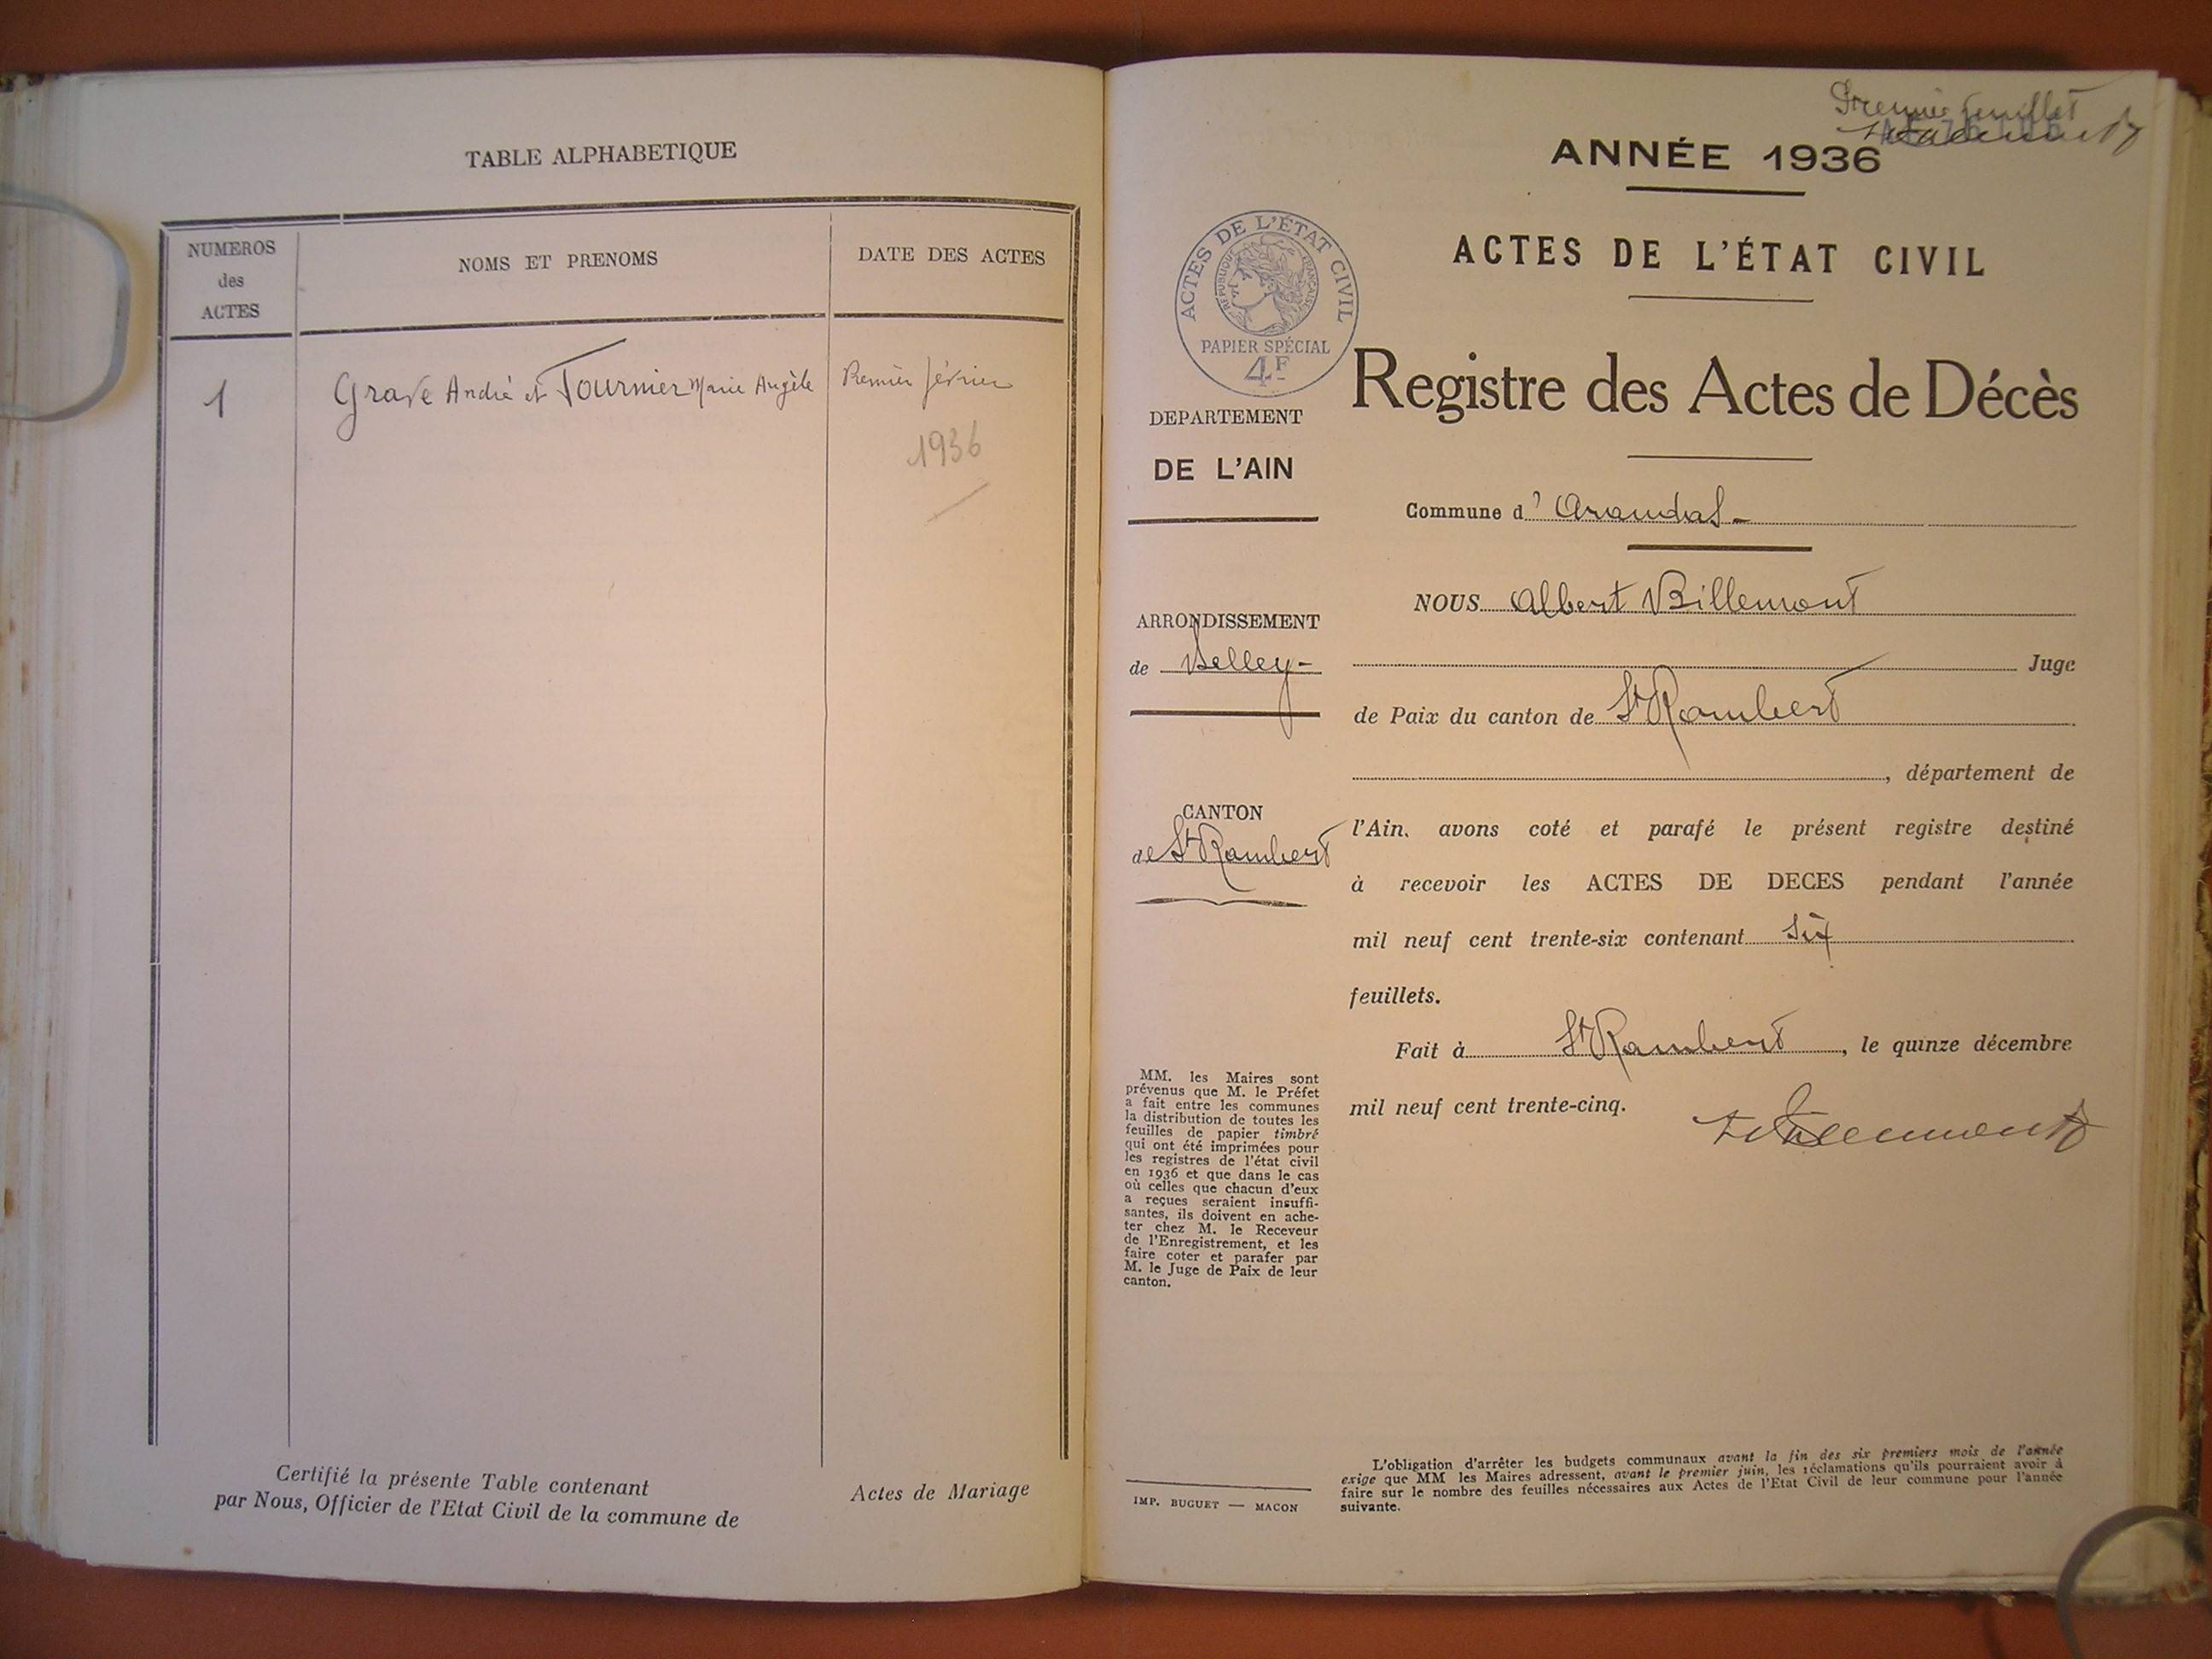 TABLE ALPHABETIQUE
NUMEROS
des
ACTES
NOMS ET PRENOMS
DATE DES ACTES
1
Grave André et Fournier Marie Angèle
Premier février
1936
Certifié la présente Table contenant
par Nous, Officier de l'Etat Civil de la commune de
Actes de Mariage
Premier feuillet
ANNÉE 1936
ACTES DE L'ÉTAT CIVIL
ACTES DE L'ÉTAT CIVIL
RÉPUBLIQUE FRANÇAISE
PAPIER SPÉCIAL
4F
Registre des Actes de Décès
DEPARTEMENT
DE L'AIN
Commune d' Arandas
NOUS Albert Billemont
ARRONDISSEMENT
de Belley
Juge
de Paix du canton de St Rambert
, département de
CANTON
de St Rambert
l'Ain, avons coté et parafé le présent registre destiné
à recevoir les ACTES DE DECES pendant l'année
mil neuf cent trente-six contenant six
feuillets.
Fait à St Rambert, le quinze décembre
mil neuf cent trente-cinq.
MM. les Maires sont
prévenus que M. le Préfet
a fait entre les communes
la distribution de toutes les
feuilles de papier timbré
qui ont été imprimées pour
les registres de l'état civil
en 1936 et que dans le cas
où celles que chacun d'eux
a reçues seraient insuffi-
santes, ils doivent en ache-
ter chez M. le Receveur
de l'Enregistrement, et les
faire coter et parafer par
M. le Juge de Paix de leur
canton.
IMP. BUGUET — MACON
L'obligation d'arrêter les budgets communaux avant la fin des six premiers mois de l'année
exige que MM les Maires adressent, avant le premier juin, les réclamations qu'ils pourraient avoir à
faire sur le nombre des feuilles nécessaires aux Actes de l'Etat Civil de leur commune pour l'année
suivante.